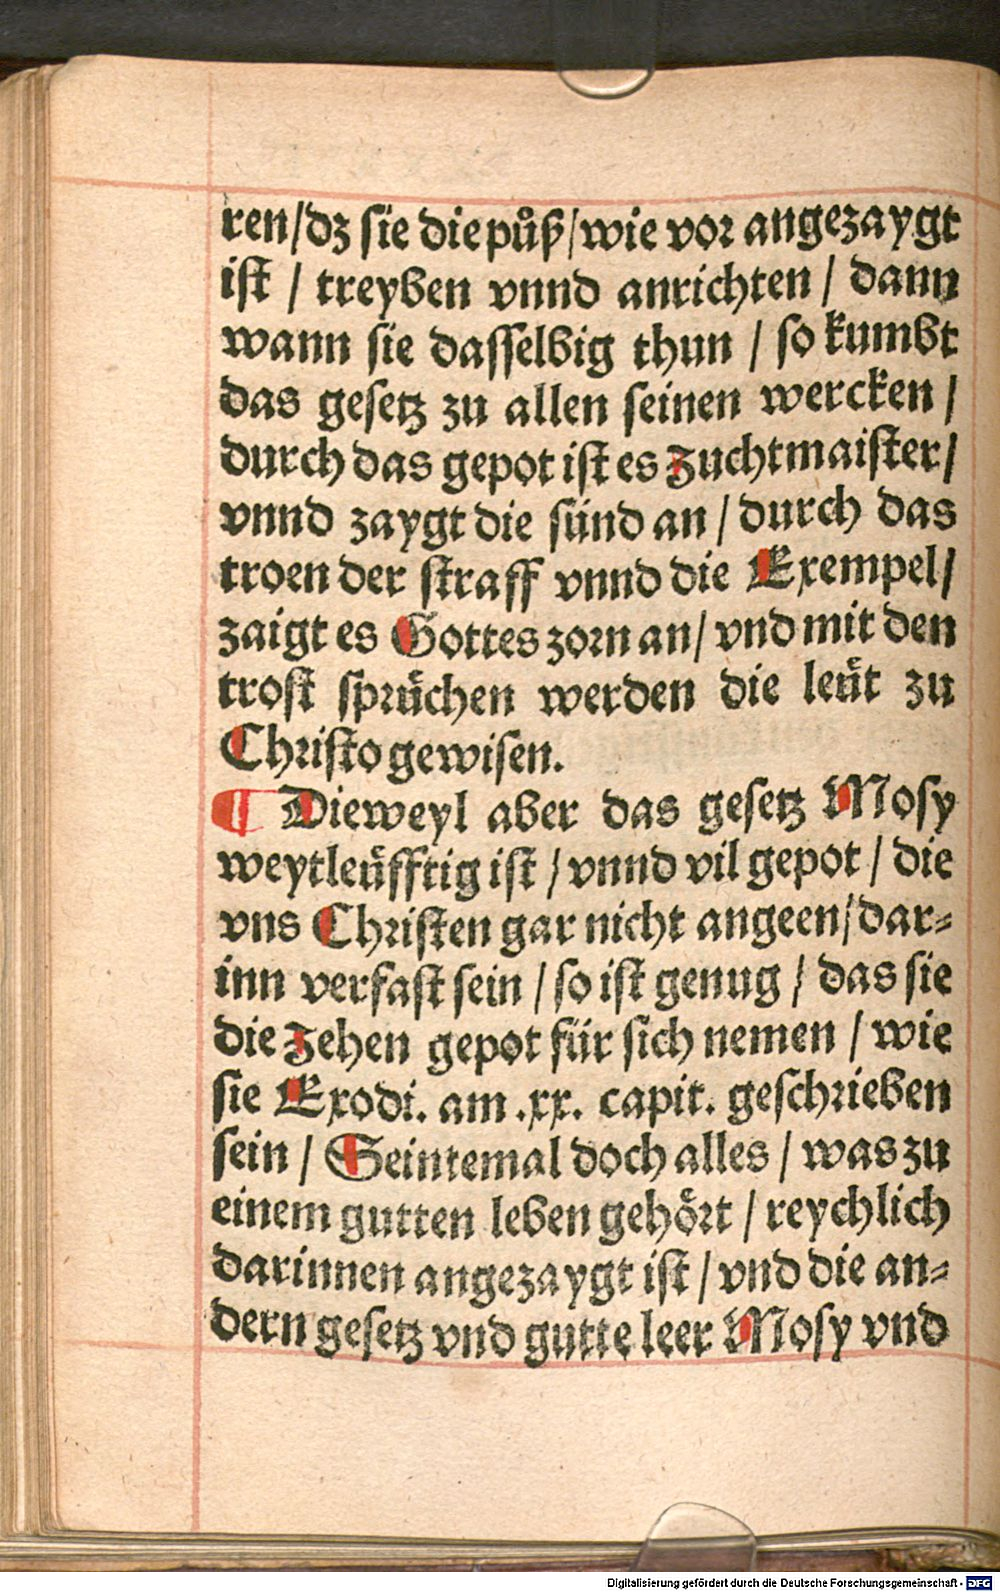 ren/dz sie die půß/wie vor angezaygt
ist / treyben vnnd anrichten / dann
wann sie dasselbig thun / so kumbt
das gesetz zu allen seinen wercken /
durch das gepot ist es Zuchtmaister/
vnnd zaygt die sünd an / durch das
troen der straff vnnd die Exempel/
zaigt es Gottes zorn an/ vnd mit den
trost sprüchen werden die leüt zu
Christo gewisen.
¶ Dieweyl aber das gesetz Mosy
weytleüfftig ist / vnnd vil gepot / die
vns Christen gar nicht angeen/dar-
inn verfast sein / so ist genug / das sie
die Zehen gepot für sich nemen / wie
sie Exodi. am .xx. capit. geschrieben
sein / Seintemal doch alles / was zu
einem gutten leben gehört / reychlich
darinnen angezaygt ist / vnd die an-
dern gesetz vnd gutte leer Mosy vnd
Digitalisierung gefördert durch die Deutsche Forschungsgemeinschaft - DFG